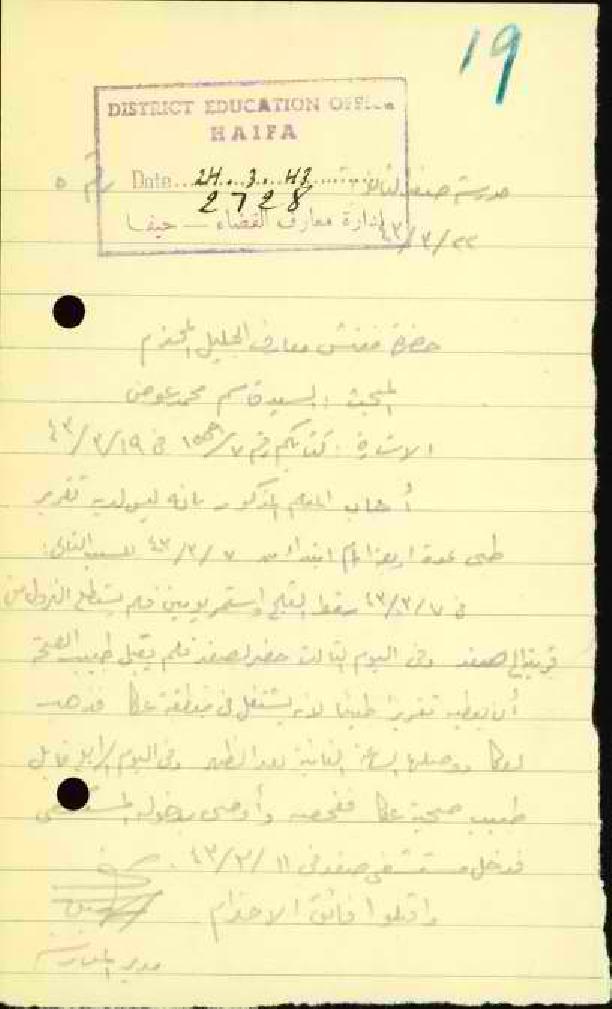 19
DISTRICT EDUCATION OFFICE
HAIFA
Date... 24...3...43......
2728
إدارة معارف القضاء — حيفا
رقم ٥
مدرسة صفد الثانوية
٢٢/٣/٤٣
حضرة مفتش معارف الجليل المحترم
المبحث : السيد قاسم محمد عوض
الاشارة : كتابكم رقم ٧/ في ٤٣/٣/١٩
أجاب المعلم المذكور بانه ليس لديه تقرير
طبي عدة اربعة ايام ابتداء من ٤٣/٣/٧ للسبب التالي :
في ٤٣/٣/٧ سقط الثلج واستمر يومين فلم يستطع النزول من
قريته الى صفد وفي اليوم الثالث حضر لصفد فلم يقبل طبيب الصحة
أن يعطيه تقريرا طبيا لانه يشتغل في منطقة عكا فذهب
لعكا ووصلها الساعة الثانية بعد الظهر وفي اليوم الرابع قابل
طبيب صحية عكا ففحصه وأوصى بدخوله المستشفى
فدخل مستشفى صفد في ١١/٣/٤٣ .
واقبلوا فائق الاحترام
مدير المدرسة